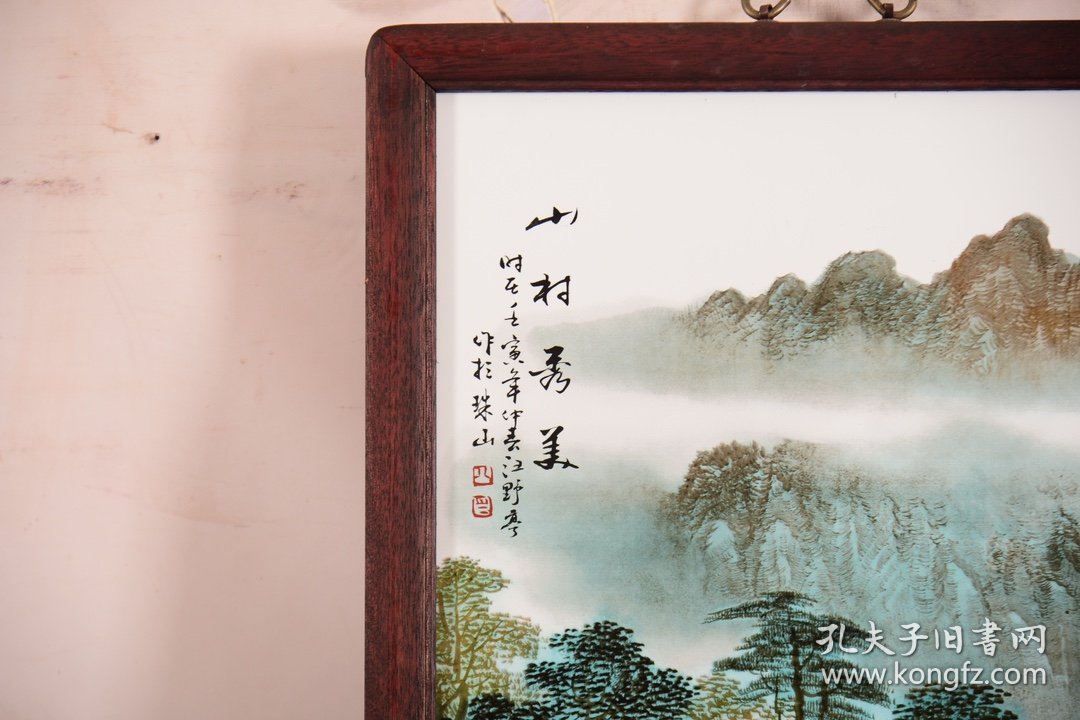 山村秀美
时在壬寅年仲春汪野亭
作於珠山
孔夫子旧书网
www.kongfz.com